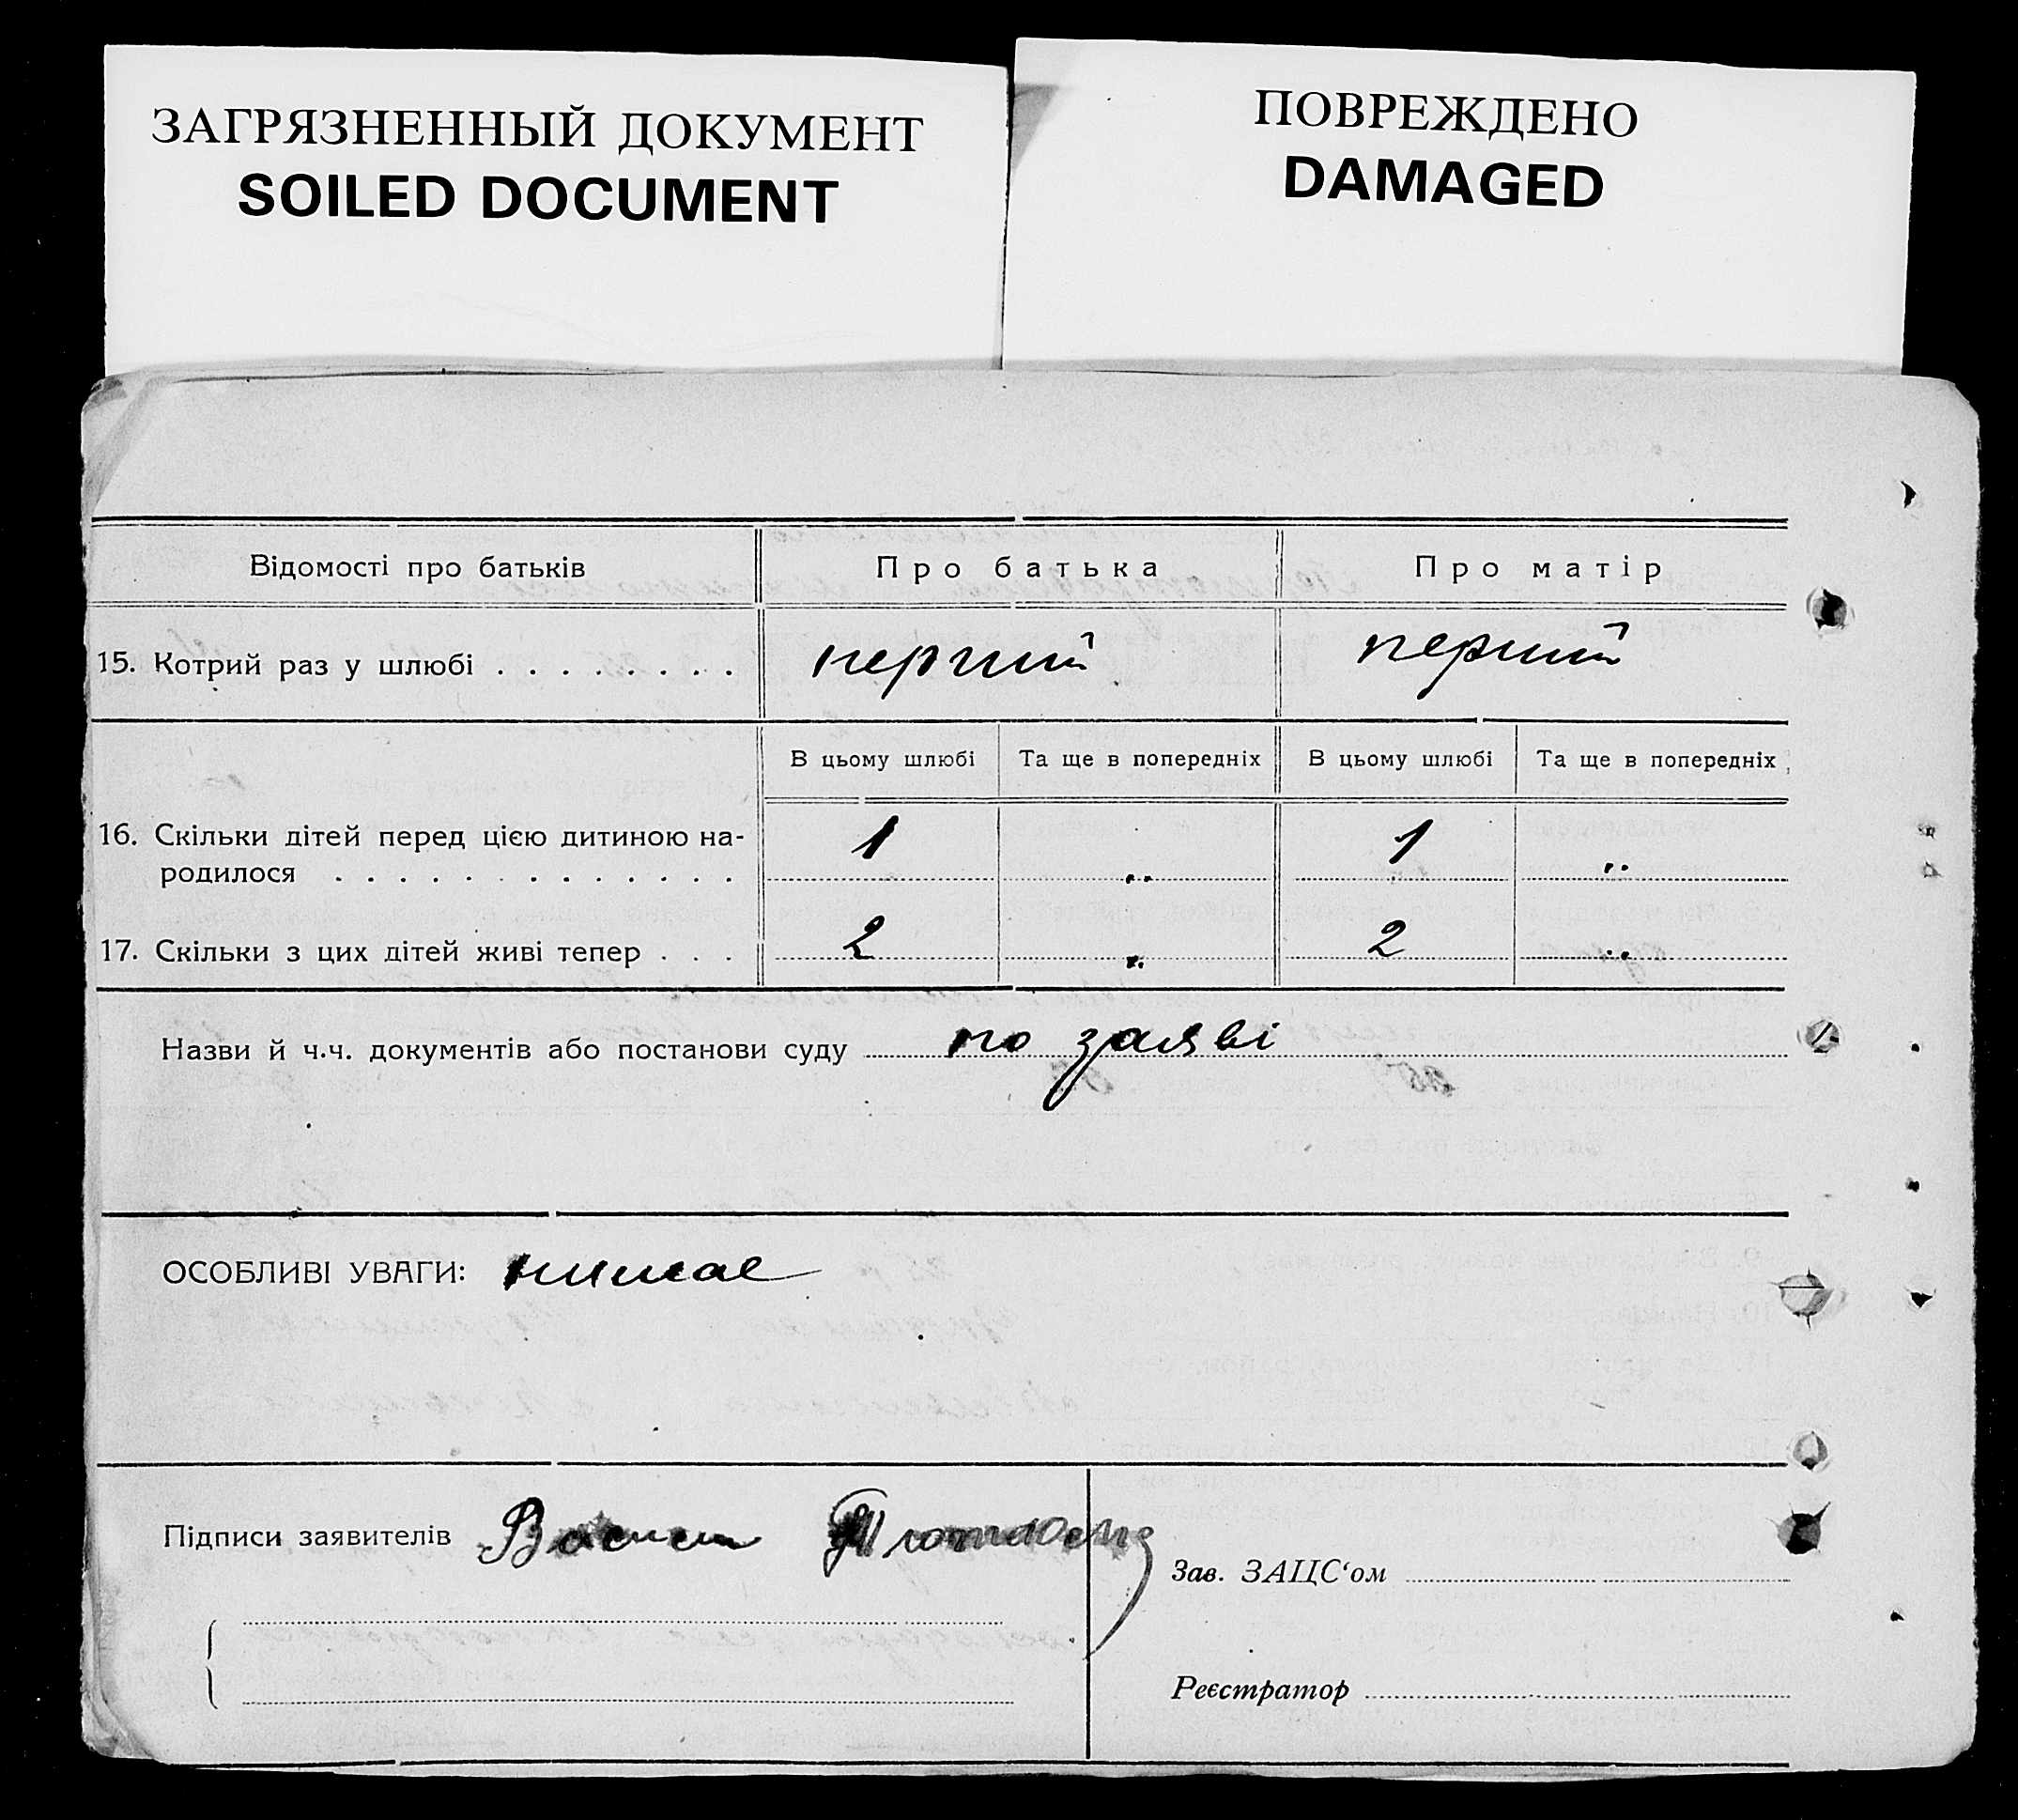 ЗАГРЯЗНЕННЫЙ ДОКУМЕНТ
SOILED DOCUMENT
ПОВРЕЖДЕНО
DAMAGED
Відомості про батьків Про батька Про матір
15. Котрий раз у шлюбі . . . . . . . . перший перший
В цьому шлюбі Та ще в попередніх В цьому шлюбі Та ще в попередніх
16. Скільки дітей перед цією дитиною на-
родилося . . . . . . . . . . . . . . 1 „ 1 „
17. Скільки з цих дітей живі тепер . . . 2 „ 2 „
Назви й ч.ч. документів або постанови суду по заяві
ОСОБЛИВІ УВАГИ: нимае
Підписи заявителів
Зав. ЗАЦС‘ом
Реєстратор